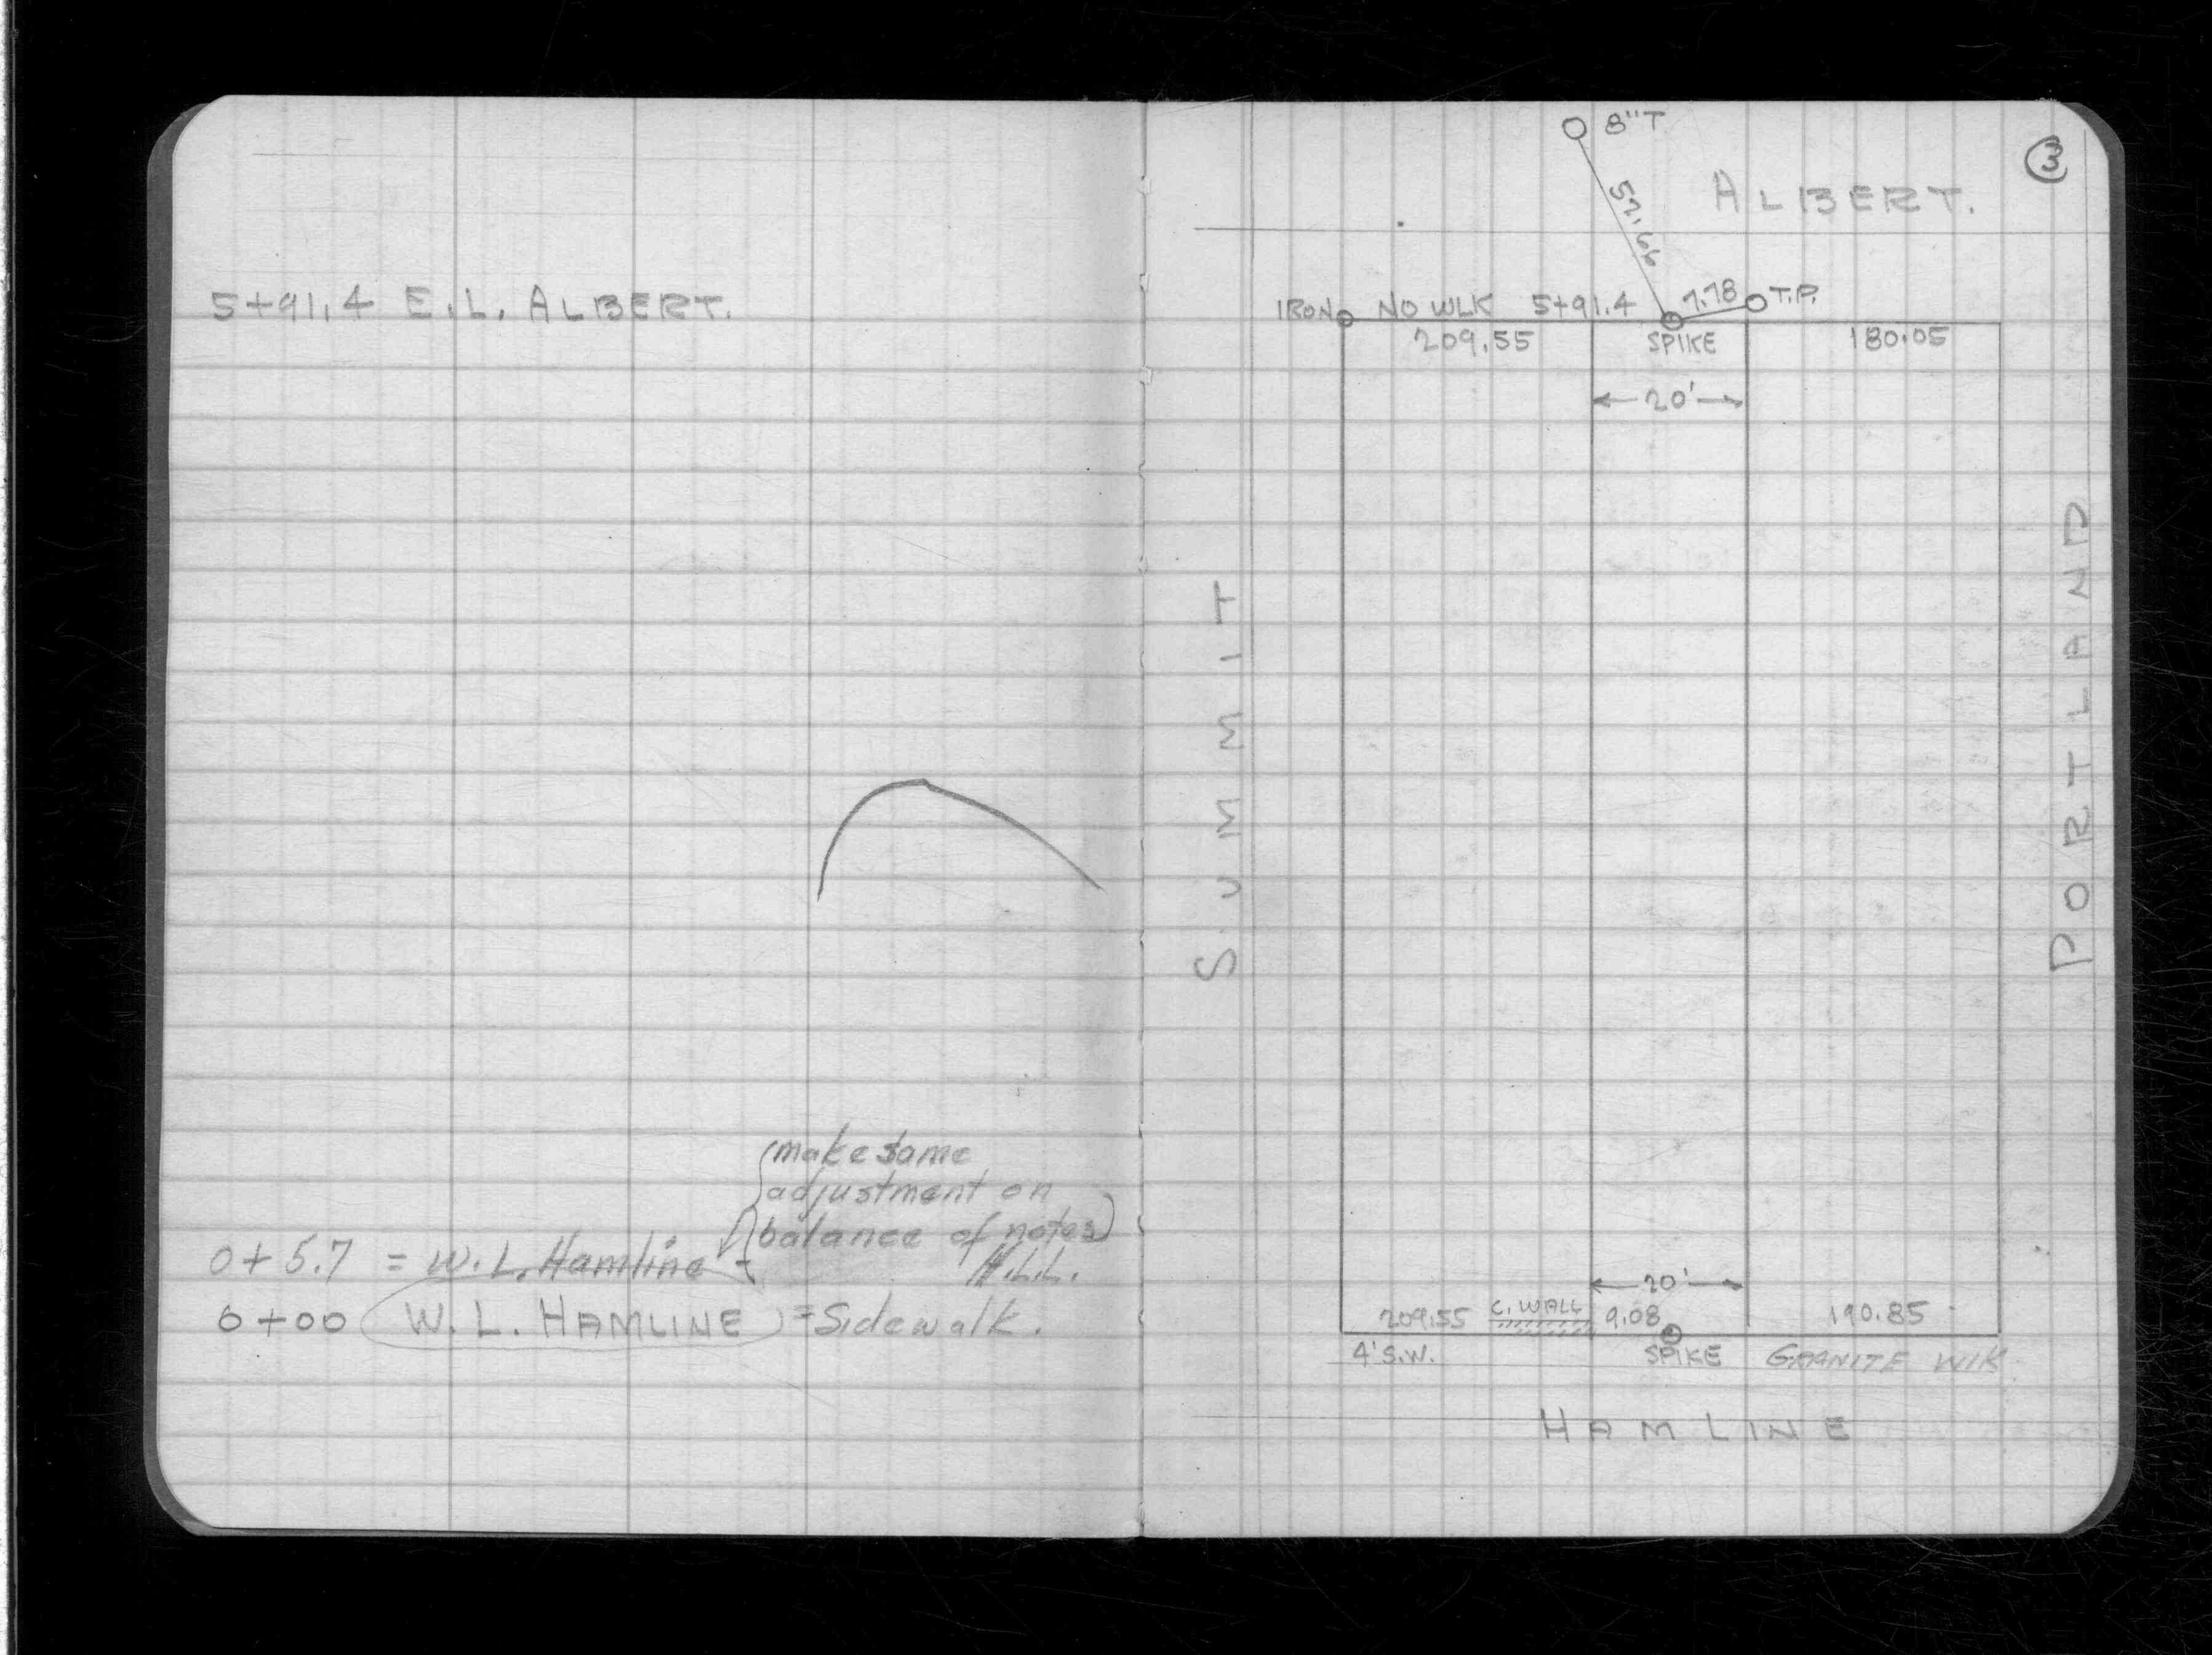 5+91.4 E.L. ALBERT.
(make same
adjustment on
balance of notes)
H.L.L.
0+5.7 = W.L. Hamline
0+00 W.L. HAMLINE = Sidewalk.
3
8"T
ALBERT.
57.66
IRON NO WLK 5+91.4 7.78 T.P.
209.55 SPIKE 180.05
20'
SUMMIT
PORTLAND
20'
209.55 C. WALL 9.08 190.85
4' S.W. SPIKE GRANITE WLK
HAMLINE